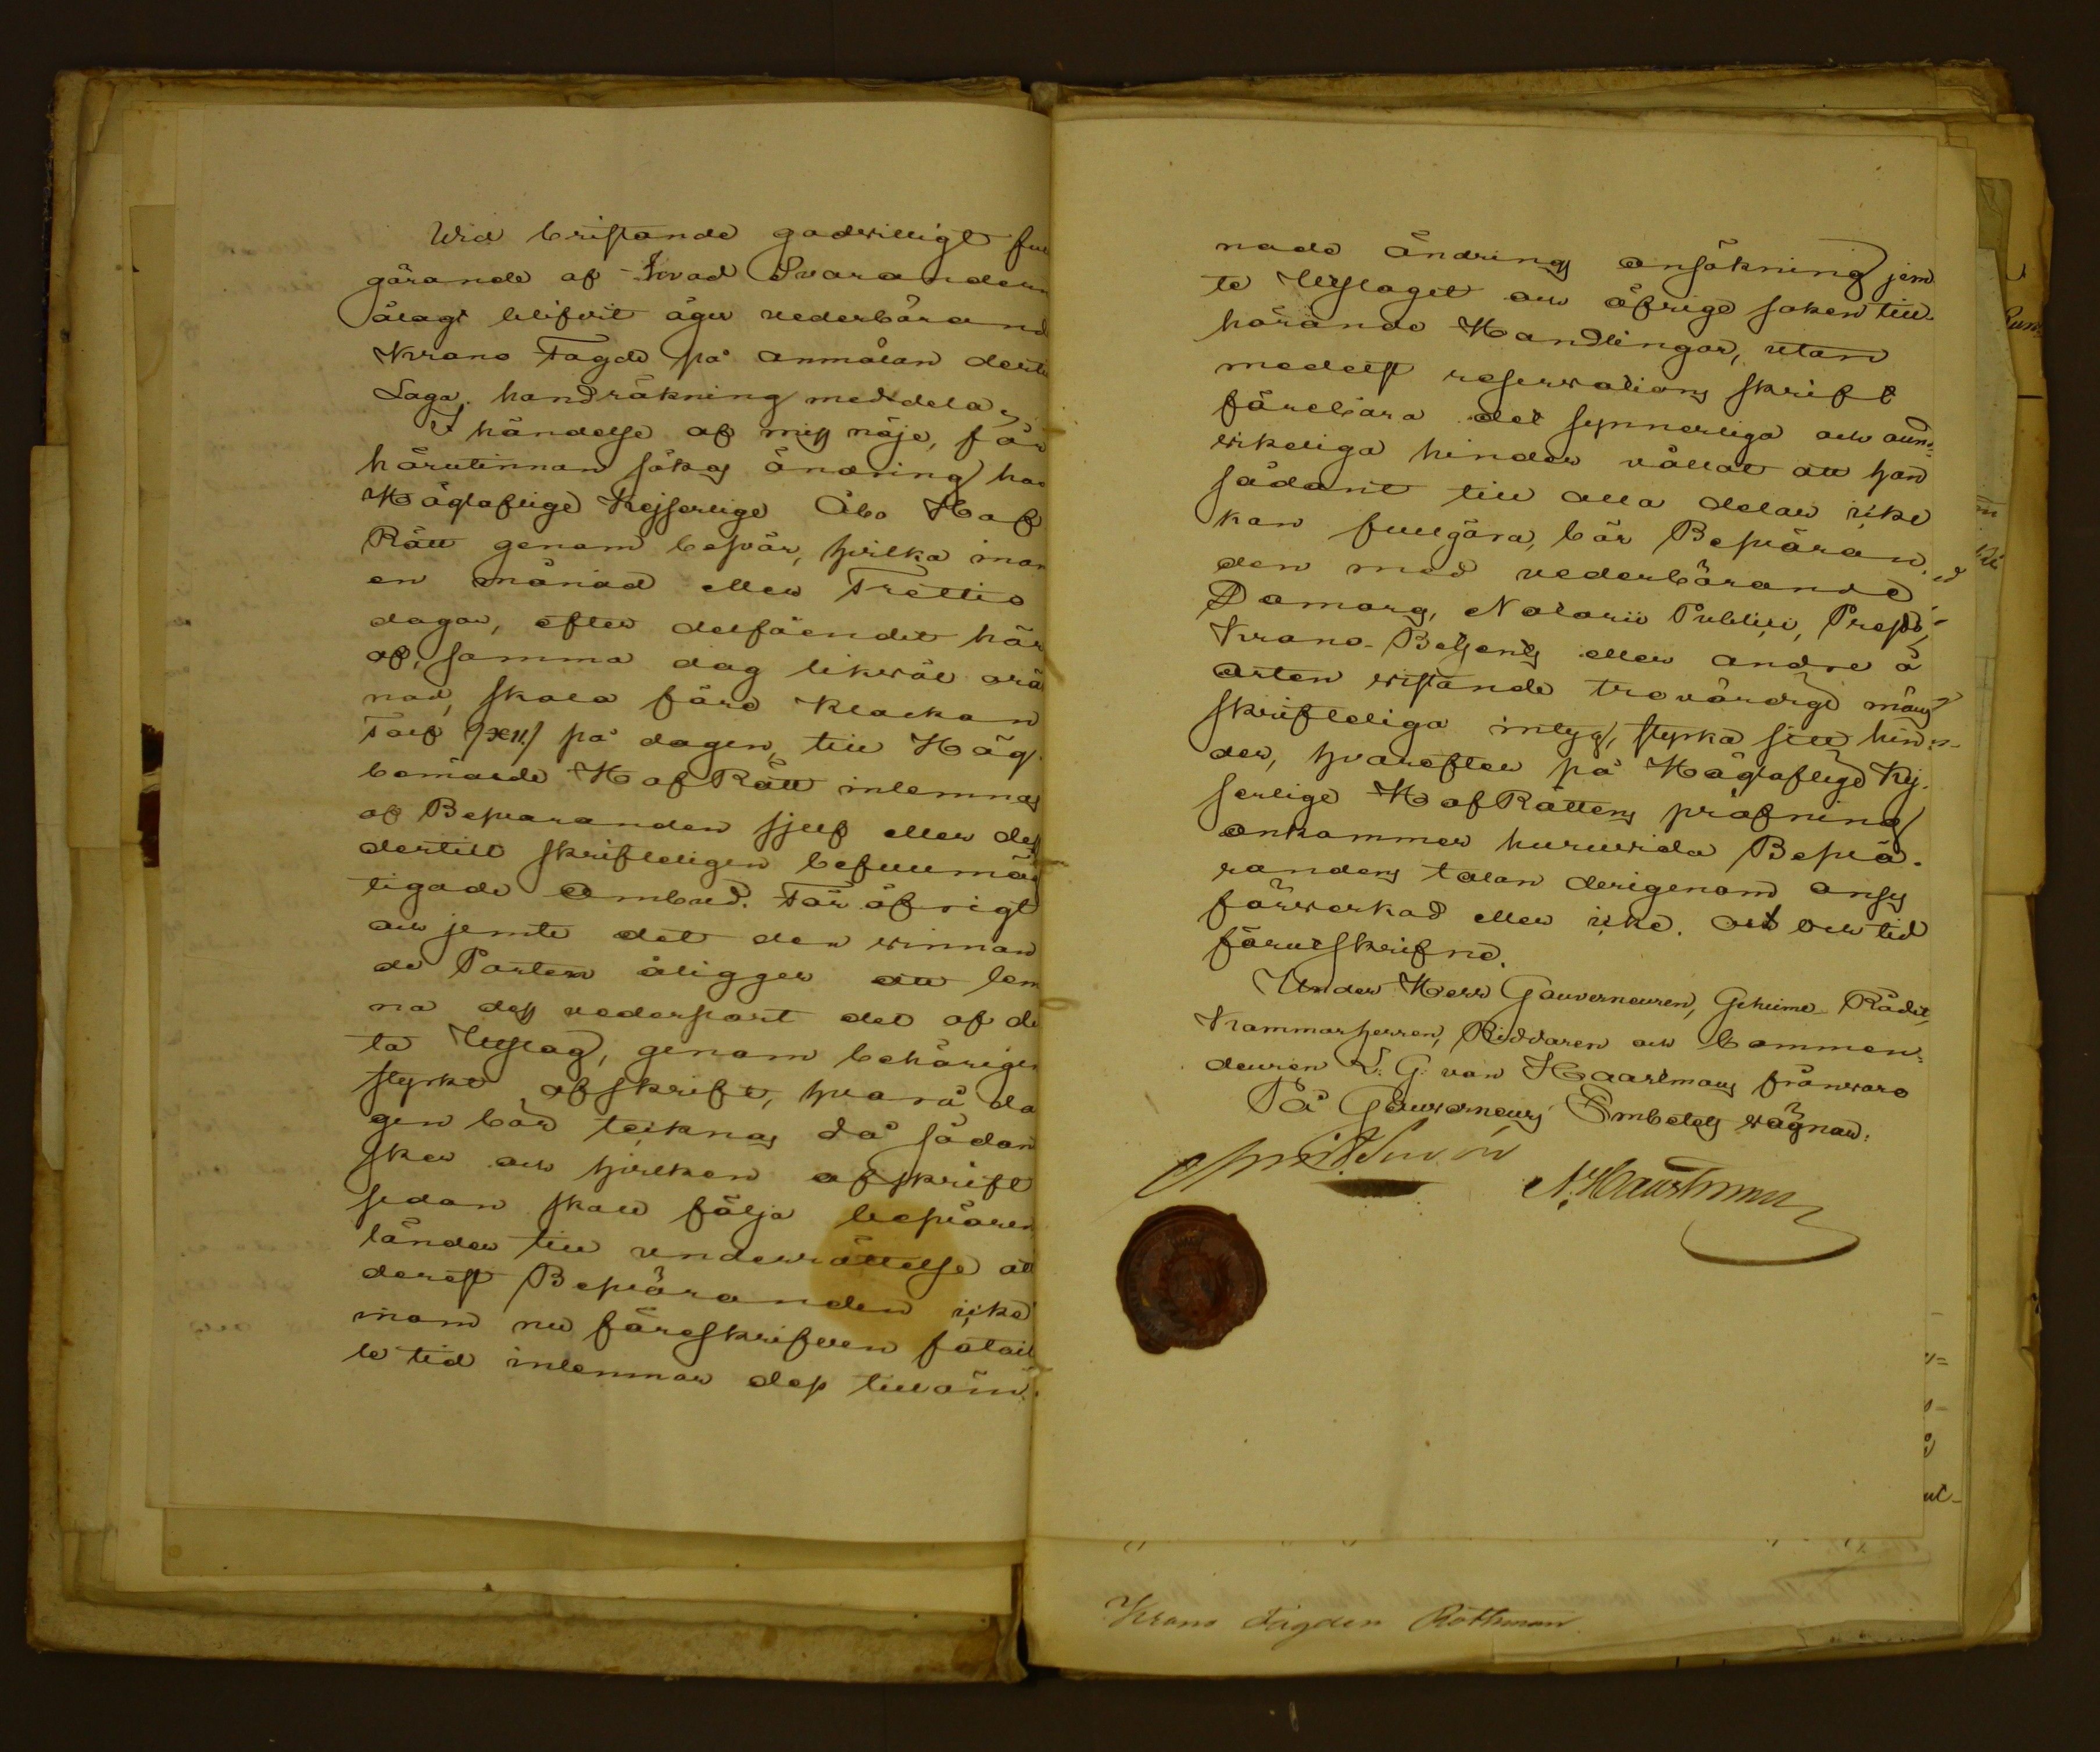 Wid bristande godwilligt full
görande af hvad Svaranden
ålagt blifvit äger vederbörand
Krono Fogde på anmälan dertill
Laga handräkning meddela,
I händelse af miss nöje, får
härutinnan sökas ändring hos
Höglofliga Kejserliga Åbo Hof
Rätt genom besvär, hvilka inom
en månad eller Trettio
dagar, efter delfåendet här
af, samma dag likwäl oräk
nad, skola före Klockan
Tolf /XII/ på dagen, till Hög.
bemälde Hof Rätt inlemnas
af Besvaranden sjelf eller dess
dertill skrifteligen befullmäg
tigade Ombud. För öfrigt
och jemte det den winnan
de Parten åligger att lem
na dess vederpart del af det
ta Utslag, genom behörigen
styrkt afskrift, hvarå da
gen bör teiknas då sådan
sker och hvilken afskrift
sedan skall följa besvären
länder till underrättelse att
derest Besväranden icke
inom nu föreskrifven fatail
le tid inlemnar dess tillärn¨
nade ändrings ansökning jem
te Utslaget och öfrige saken till
hörande Handlingar, utan
medelst reservations skrift
förebära det synnerliga och ound=
wikeliga hinder vållat att han
sådant till alla delar icke
kan fullgöra, bör Besväran
den med vederbörande
Domares, Notarii Publici, Prests,
Krono-Betjents eller andre å
orten wistande trovärdige mäns
skrifteliga intyg, styrka sitt hin=
der, hvarefter på Höglofliga Kej.
serlige Hof Rättens pröfning
ankommer huruvida Besvä.
randens talan derigenom anses
förwerkad eller icke. Ort och tid
förutskrifne.
Under Herr Gouverneuren, Geheime Rådet,
Kammarherren, Riddaren och Commen=
deuren L. G. von Haartmans frånvaro
På Gouverneurs Embetets wägnar:
Krono Fogden Rothman.